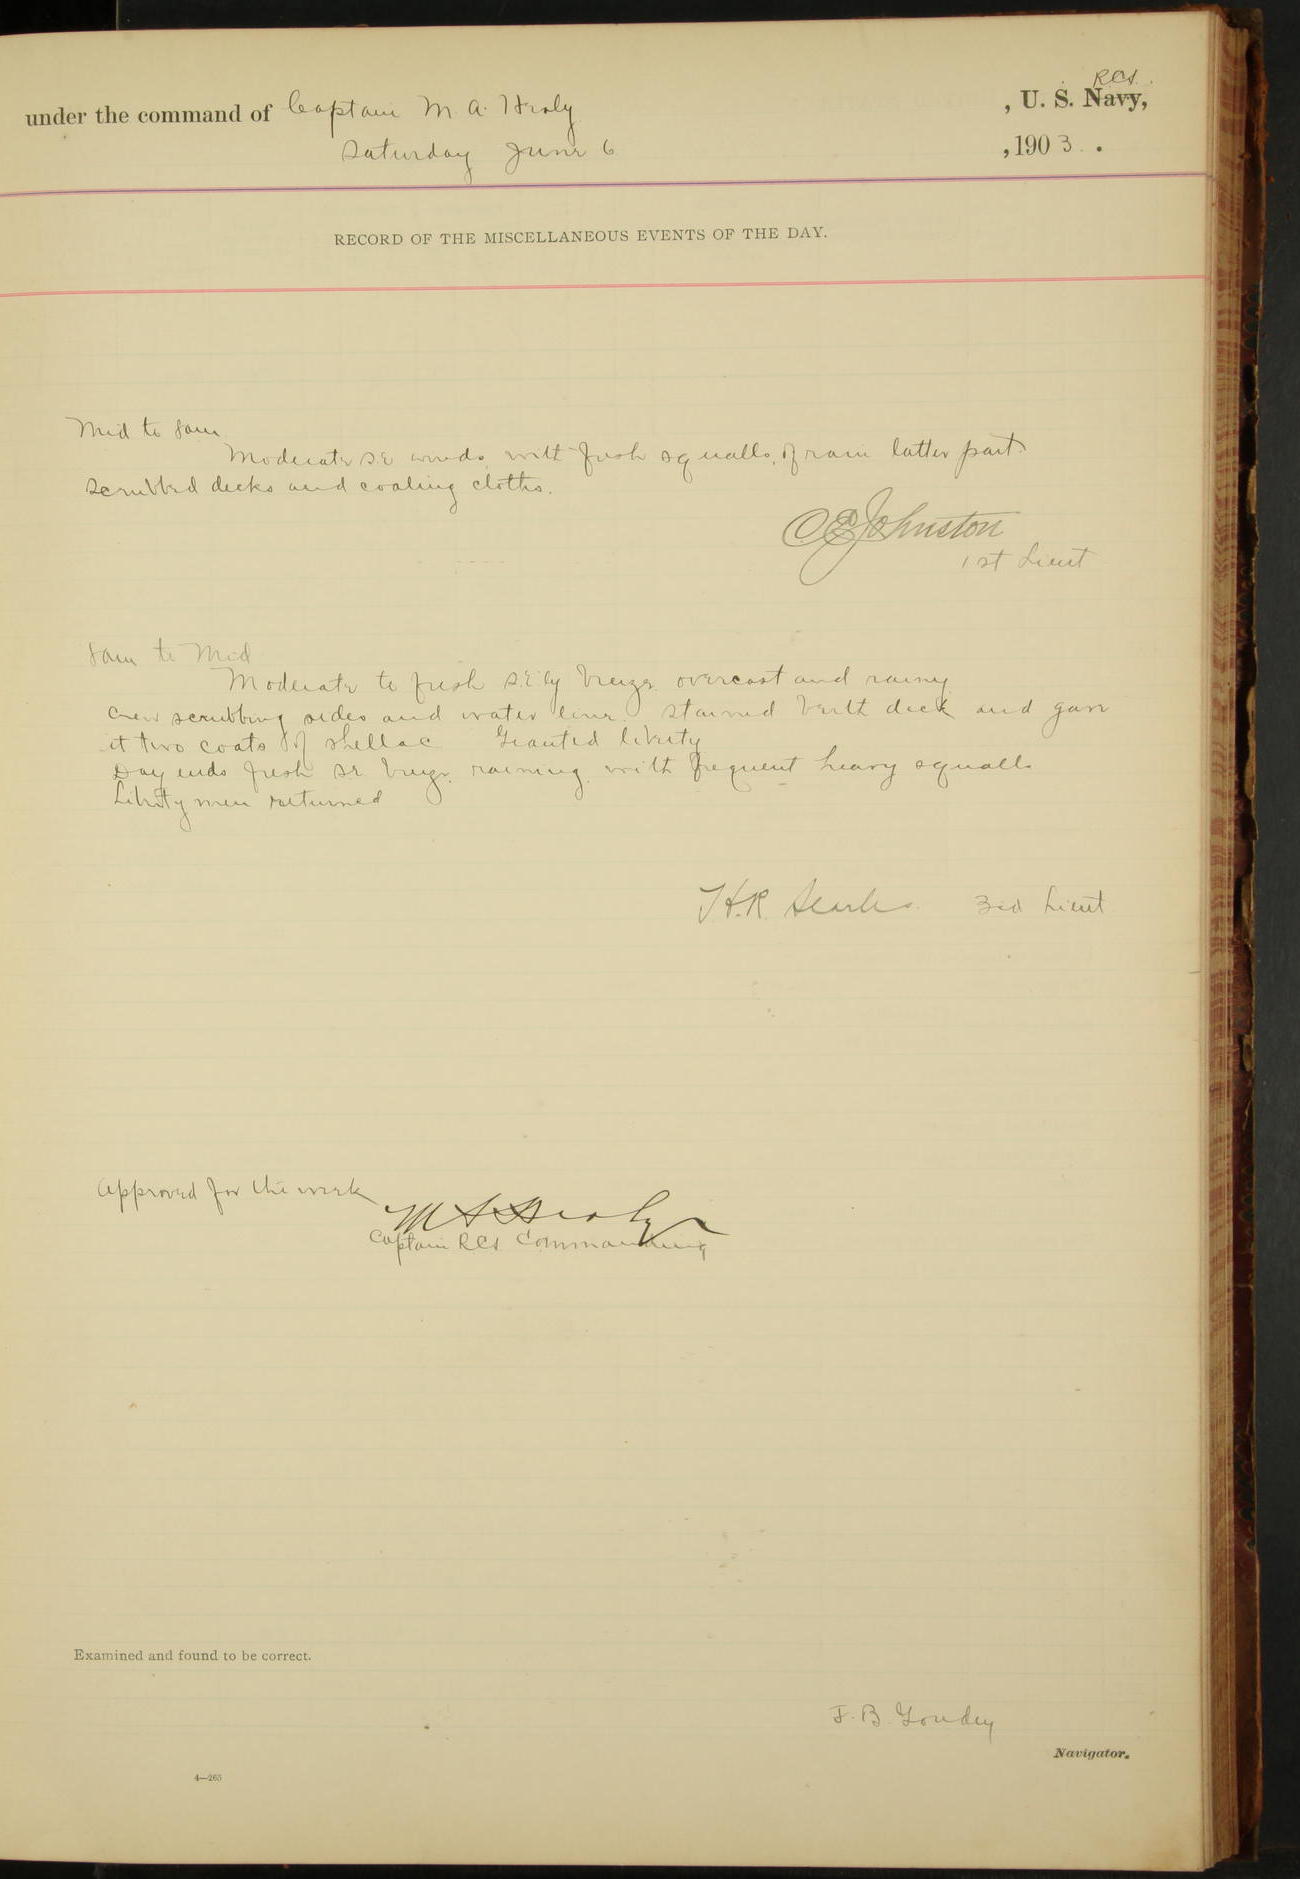 RCS.
under the command of Captain M. A. Healy , U. S. Navy,
Saturday June 6 , 1903 .
RECORD OF THE MISCELLANEOUS EVENTS OF THE DAY.
Mid to 8am
Moderate SE winds with fresh squalls, of rain latter part
Scrubbed decks and coaling cloths.
C E Johnston
1st Lieut
8am to Mid
Moderate to fresh S.E'ly breeze overcast and rainy
Crew scrubbing sides and water line. Stained berth deck and gave
it two coats of shellac Granted liberty
Day ends fresh SE breeze, raining with frequent heavy squalls
Liberty men returned
H.R. Searles 3rd Lieut
Approved for the week
M A Healy
Captain RCS Commanding
Examined and found to be correct.
F. B. Goudey
Navigator.
4—265